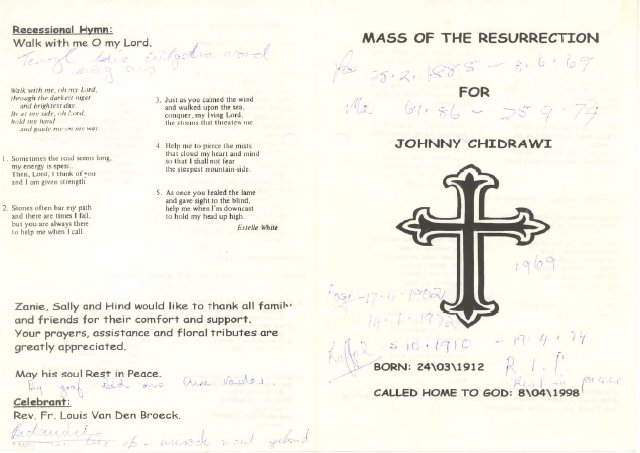 Recessional Hymn:
Walk with me O my Lord.
Walk with me, oh my Lord,
through the darkest night
and brightest day
Be at my side, oh Lord,
hold my hand
and guide me on my way.
1. Sometimes the road seems long,
my energy is spent.
Then, Lord, I think of you
and I am given strength.
2. Stones often bar my path
and there are times I fall,
but you are always there
to help me when I call.
3. Just as you calmed the wind
and walked upon the sea,
conquer, my living Lord,
the storms that threaten me.
4. Help me to pierce the mists
that cloud my heart and mind
so that I shall not fear
the steepest mountain-side.
5. As once you healed the lame
and gave sight to the blind,
help me when I'm downcast
to hold my head up high.
Estelle White
Zanie, Sally and Hind would like to thank all family
and friends for their comfort and support.
Your prayers, assistance and floral tributes are
greatly appreciated.
May his soul Rest in Peace.
Celebrant:
Rev. Fr. Louis Van Den Broeck.
MASS OF THE RESURRECTION
FOR
JOHNNY CHIDRAWI
1969
5.10.1910 - 19.4.74
R.I.P
Rest in peace
BORN: 24\03\1912
CALLED HOME TO GOD: 8\04\1998